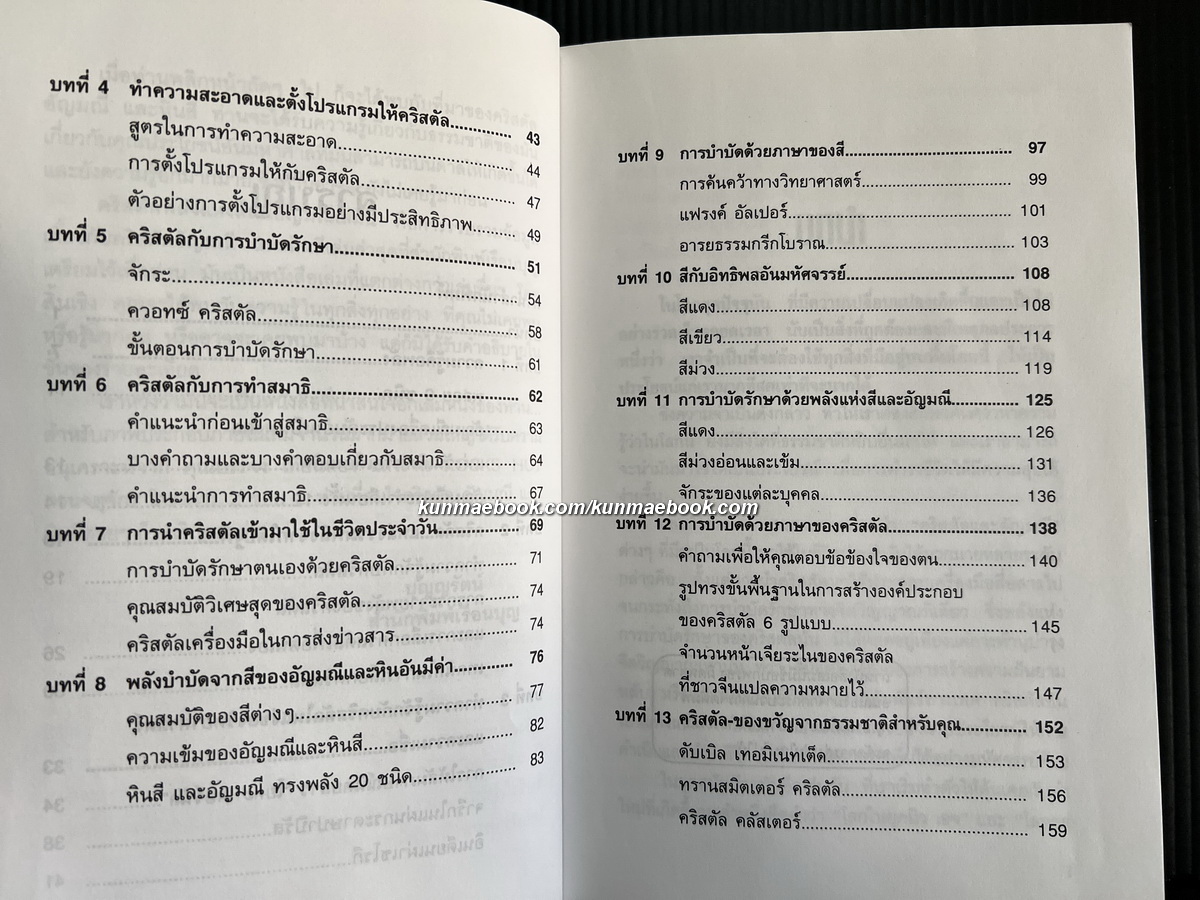 บทที่ 4 ทำความสะอาดและตั้งโปรแกรมให้คริสตัล............. 43
สูตรในการทำความสะอาด.......................... 44
การตั้งโปรแกรมให้กับคริสตัล....................... 47
ตัวอย่างการตั้งโปรแกรมอย่างมีประสิทธิภาพ........ 49
บทที่ 5 คริสตัลกับการบำบัดรักษา............................. 51
จักระ.................................................... 54
ควอทซ์ คริสตัล....................................... 58
ขั้นตอนการบำบัดรักษา.............................. 61
บทที่ 6 คริสตัลกับการทำสมาธิ................................ 62
คำแนะนำก่อนเข้าสู่สมาธิ............................ 63
บางคำถามและบางคำตอบเกี่ยวกับสมาธิ............ 64
คำแนะนำการทำสมาธิ............................... 67
บทที่ 7 การนำคริสตัลเข้ามาใช้ในชีวิตประจำวัน............. 69
การบำบัดรักษาตนเองด้วยคริสตัล.................. 71
คุณสมบัติวิเศษสุดของคริสตัล....................... 74
คริสตัลเครื่องมือในการส่งข่าวสาร.................. 74
บทที่ 8 พลังบำบัดจากสีของอัญมณีและหินอันมีค่า........... 76
คุณสมบัติของสีต่างๆ................................. 77
ความเข้มของอัญมณีและหินสี....................... 82
หินสี และอัญมณี ทรงพลัง 20 ชนิด................ 83
บทที่ 9 การบำบัดด้วยภาษาของสี............................ 97
การค้นคว้าทางวิทยาศาสตร์......................... 99
แฟรงค์ อัลเปอร์..................................... 101
อารยธรรมกรีกโบราณ............................... 103
บทที่ 10 สีกับอิทธิพลอันมหัศจรรย์............................ 108
สีแดง.................................................. 108
สีเขียว................................................. 114
สีม่วง.................................................. 119
บทที่ 11 การบำบัดรักษาด้วยพลังแห่งสีและอัญมณี........... 125
สีแดง.................................................. 126
สีม่วงอ่อนและเข้ม................................... 131
จักระของแต่ละบุคคล................................ 136
kunmaebook.com/kunmaebook.com
บทที่ 12 การบำบัดด้วยภาษาของคริสตัล..................... 138
คำถามเพื่อให้คุณตอบข้อข้องใจของตน.............. 140
รูปทรงขั้นพื้นฐานในการสร้างองค์ประกอบ
ของคริสตัล 6 รูปแบบ............................... 145
จำนวนหน้าเจียระไนของคริสตัล
ที่ชาวจีนแปลความหมายไว้.......................... 147
บทที่ 13 คริสตัล-ของขวัญจากธรรมชาติสำหรับคุณ........... 152
ดับเบิล เทอมิเนทเต็ด................................ 153
ทรานสมิตเตอร์ คริลตัล.............................. 156
คริสตัล คลัสเตอร์.................................... 159